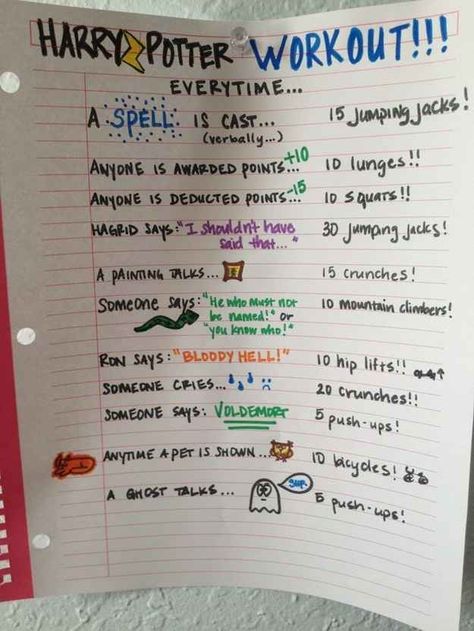 HARRY POTTER WORKOUT!!!
EVERYTIME...
A SPELL IS CAST... 15 jumping jacks!
(verbally...)
ANYONE IS AWARDED POINTS... +10 10 lunges!!
ANYONE IS DEDUCTED POINTS... -15 10 squats!!
HAGRID SAYS: "I shouldn't have 30 jumping jacks!
said that..."
A PAINTING TALKS... 15 crunches!
SOMEONE SAYS: "He who must not 10 mountain climbers!
be named!" or
"you know who!"
RON SAYS: "BLOODY HELL!" 10 hip lifts!!
SOMEONE CRIES... 20 crunches!!
SOMEONE SAYS: VOLDEMORT 5 push-ups!
ANYTIME A PET IS SHOWN... 10 bicycles!
A GHOST TALKS... SUP. 5 push-ups!